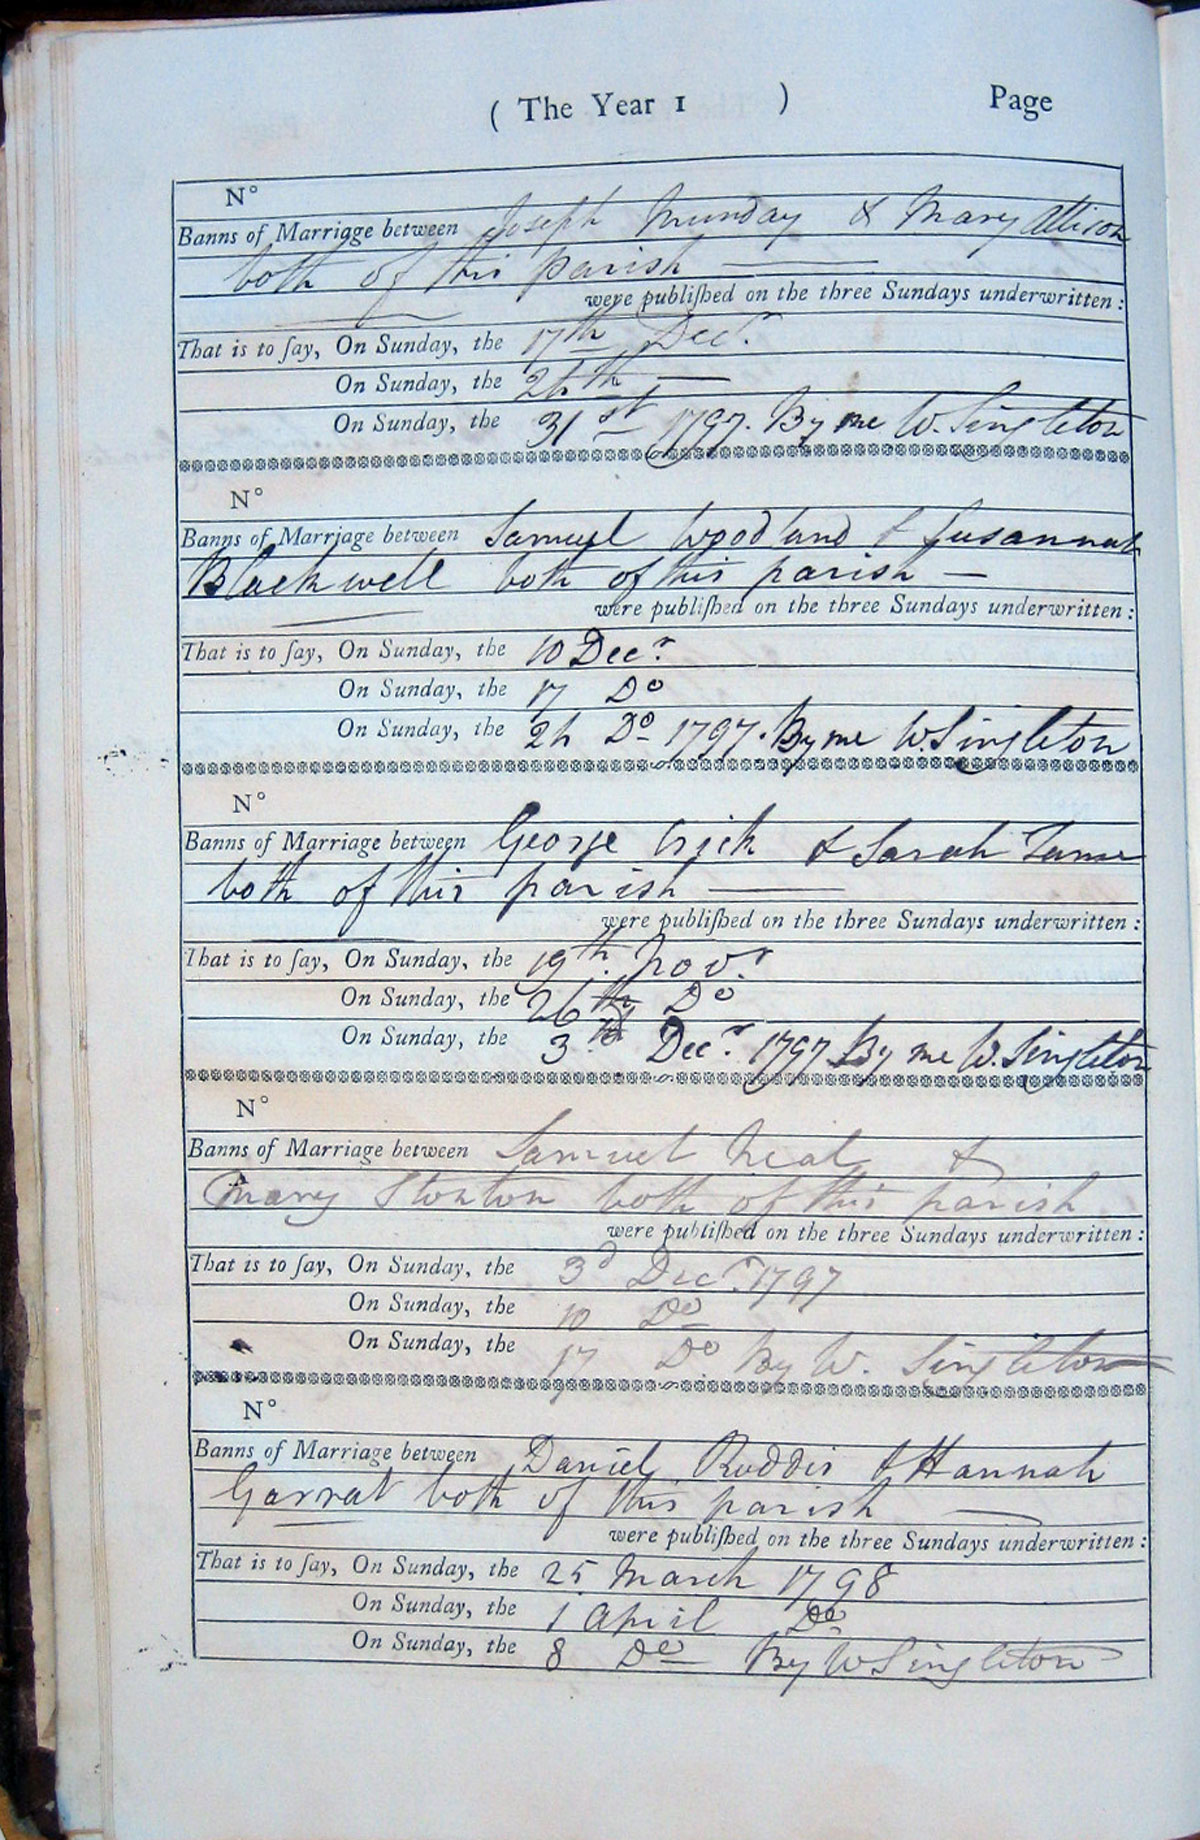 ( The Year 1 ) Page
N°
Banns of Marriage between Joseph Munday & Mary Allison
both of this parish
were publiſhed on the three Sundays underwritten :
That is to ſay, On Sunday, the 17th Decr.
On Sunday, the 24th
On Sunday, the 31st 1797. By me W. Singleton
N°
Banns of Marriage between Samuel Woodland & Susannah
Blackwell both of this parish
were publiſhed on the three Sundays underwritten :
That is to ſay, On Sunday, the 10 Decr.
On Sunday, the 17 Do
On Sunday, the 24 Do 1797. By me W. Singleton
N°
Banns of Marriage between George Crick & Sarah
both of this parish
were publiſhed on the three Sundays underwritten :
That is to ſay, On Sunday, the 19th. Novr.
On Sunday, the 26th Do
On Sunday, the 3rd Decr. 1797 By me W. Singleton
N°
Banns of Marriage between Samuel Neal &
Mary Stonton both of this parish
were publiſhed on the three Sundays underwritten :
That is to ſay, On Sunday, the 3d Decr. 1797
On Sunday, the 10 Do
On Sunday, the 17 Do By W. Singleton
N°
Banns of Marriage between Daniel Roddis & Hannah
Garrat both of this parish
were publiſhed on the three Sundays underwritten :
That is to ſay, On Sunday, the 25 March 1798
On Sunday, the 1 April Do
On Sunday, the 8 Do By W Singleton